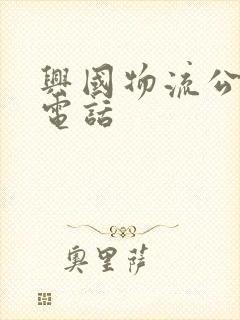 興國物流公
電話
奧里薩